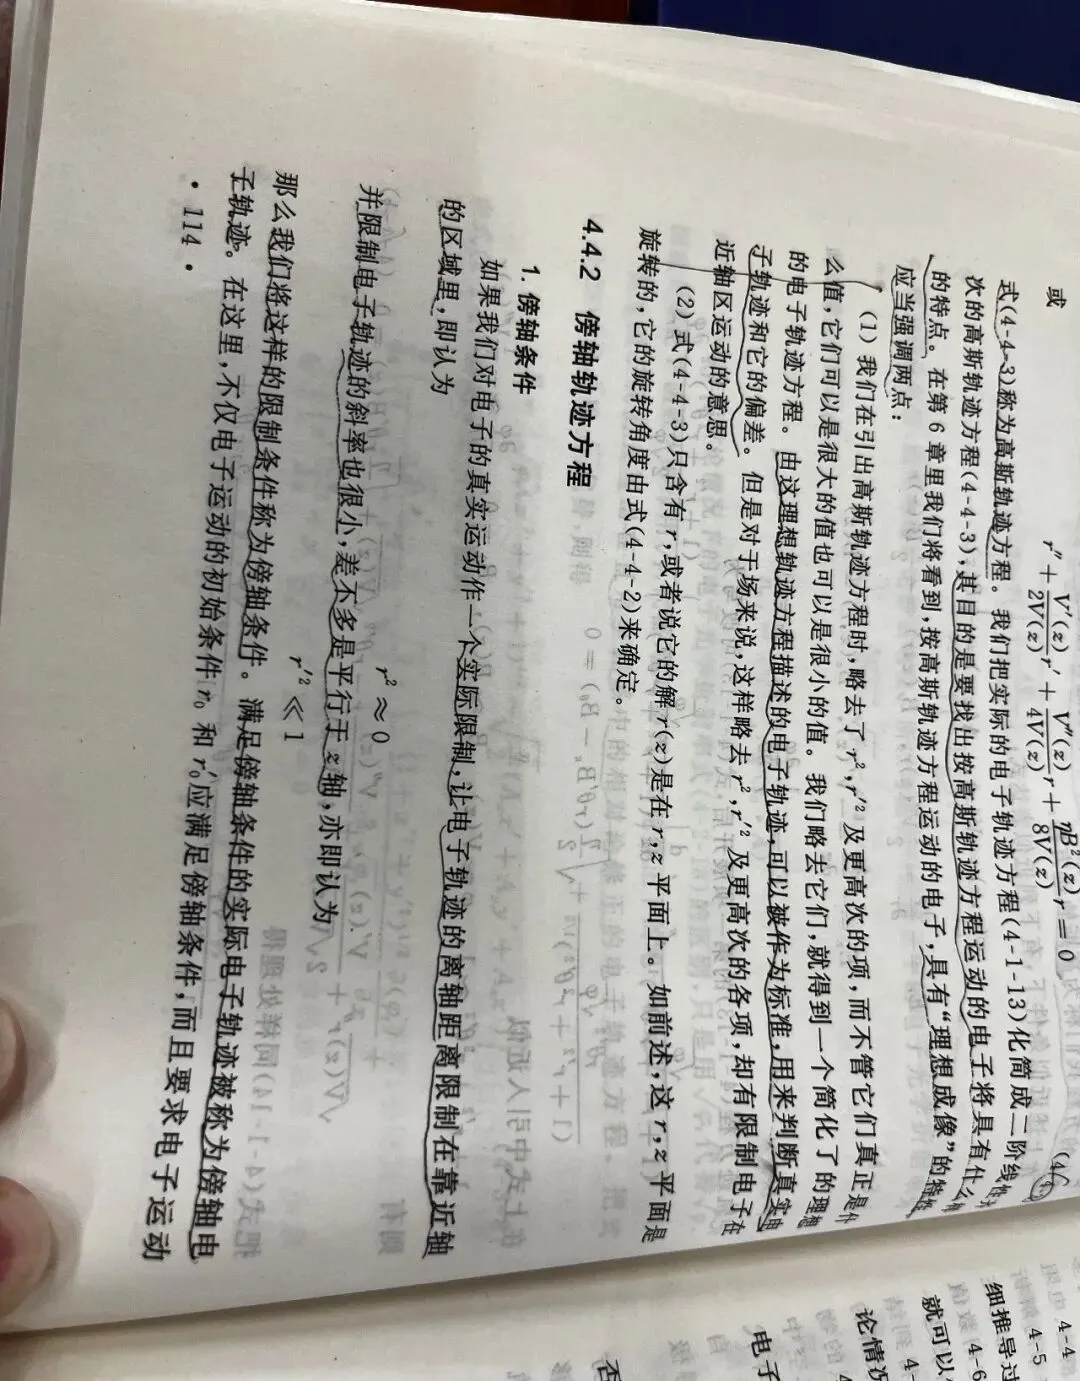 或
r″ + V′(z)/2V(z) r′ + V″(z)/4V(z) r + ηB²(z)/8V(z) r = 0
式(4-4-3)称为高斯轨迹方程。我们把实际的电子轨迹方程(4-1-13)化简成二阶线
次的高斯轨迹方程(4-4-3),其目的是要找出按高斯轨迹方程运动的电子将具有什么
的特点。在第 6 章里我们将看到,按高斯轨迹方程运动的电子,具有“理想成像”的特
应当强调两点:
(1) 我们在引出高斯轨迹方程时,略去了 r²,r′² 及更高次的项,而不管它们真正是什
么值,它们可以是很大的值也可以是很小的值。我们略去它们,就得到一个简化了的理想
的电子轨迹方程。由这理想轨迹方程描述的电子轨迹,可以被作为标准,用来判断真实电
子轨迹和它的偏差。但是对于场来说,这样略去 r²,r′² 及更高次的各项,却有限制电子在
近轴区运动的意思。
(2) 式(4-4-3)只含有 r,或者说它的解 r(z)是在 r,z 平面上。如前述,这 r,z 平面是
旋转的,它的旋转角度由式(4-4-2)来确定。
4.4.2 傍轴轨迹方程
1. 傍轴条件
如果我们对电子的真实运动作一个实际限制,让电子轨迹的离轴距离限制在靠近轴
的区域里,即认为
r² ≈ 0
并限制电子轨迹的斜率也很小,差不多是平行于 z 轴,亦即认为
r′² ≪ 1
那么我们将这样的限制条件称为傍轴条件。满足傍轴条件的实际电子轨迹被称为傍轴电
子轨迹。在这里,不仅电子运动的初始条件 r₀ 和 r₀′应满足傍轴条件,而且要求电子运动
· 114 ·
4-4
4-5
细推导过
4-6
就可以
论情况
电子
否